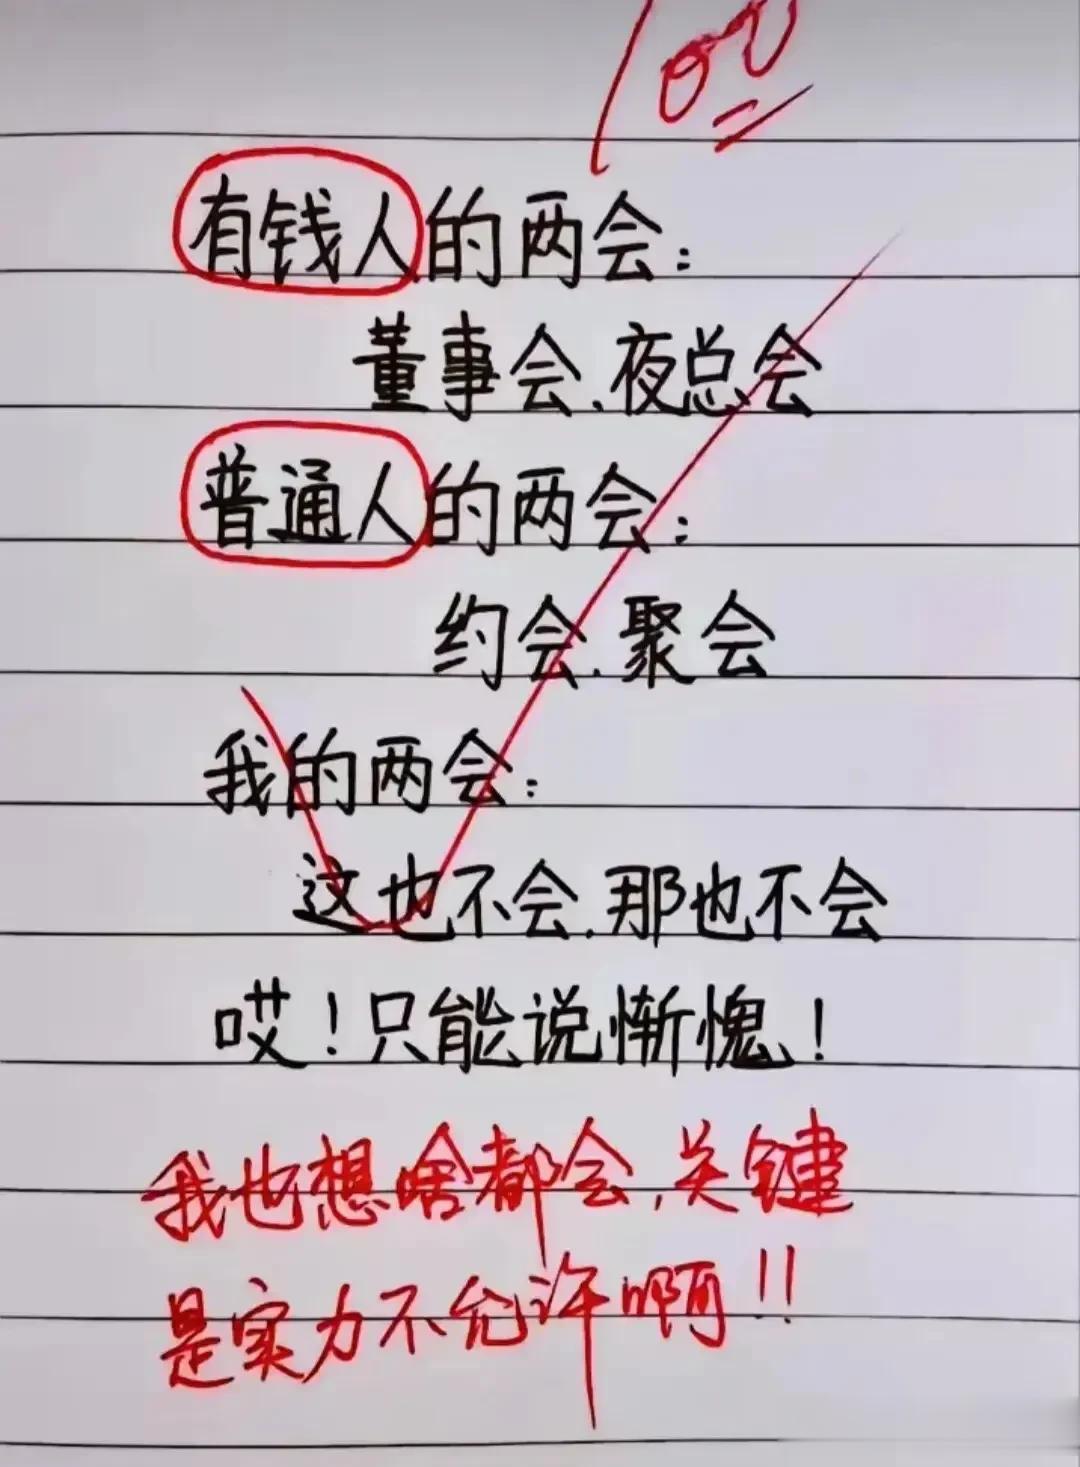 100
有钱人的两会：
董事会、夜总会
普通人的两会：
约会、聚会
我的两会：
这也不会、那也不会
哎！只能说惭愧！
我也想啥都会，关键
是实力不允许啊!!